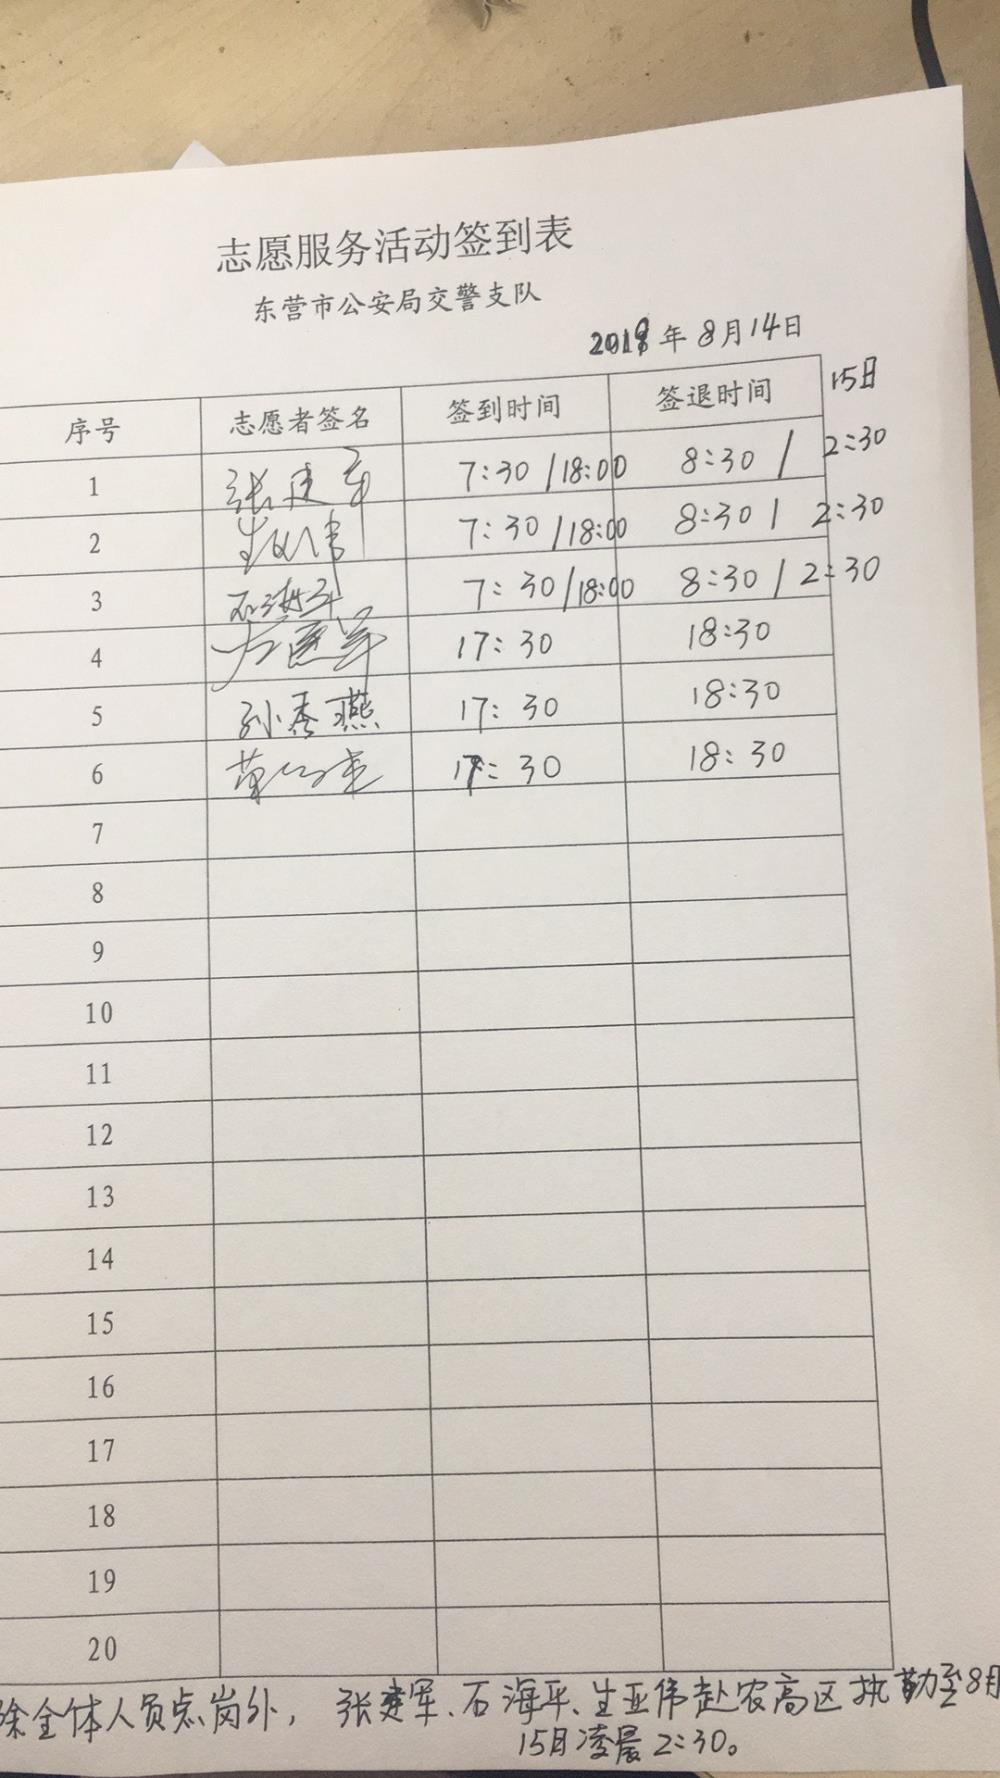 志愿服务活动签到表
东营市公安局交警支队
2018年8月14日
15日
序号 志愿者签名 签到时间 签退时间
1 张建军 7:30 /18:00 8:30 / 2:30
2 生亚伟 7:30 /18:00 8:30 / 2:30
3 石海平 7:30 /18:00 8:30 / 2:30
4 17:30 18:30
5 孙秀燕 17:30 18:30
6 17:30 18:30
7
8
9
10
11
12
13
14
15
16
17
18
19
20
除全体人员点岗外，张建军、石海平、生亚伟赴农高区执勤至8月
15日凌晨2:30。